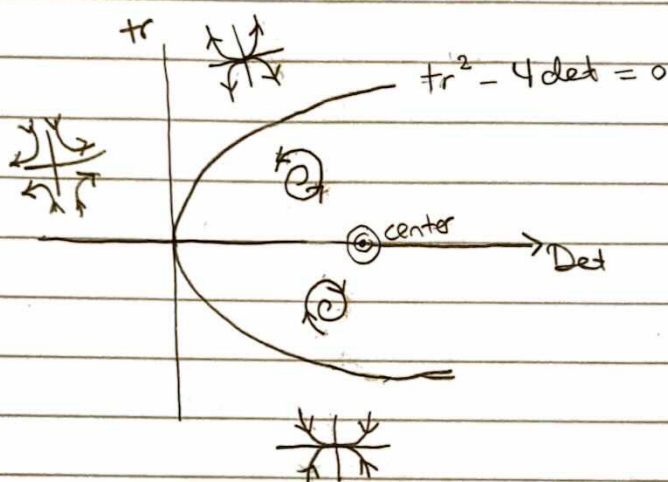 tr
tr² - 4det = 0
center
Det